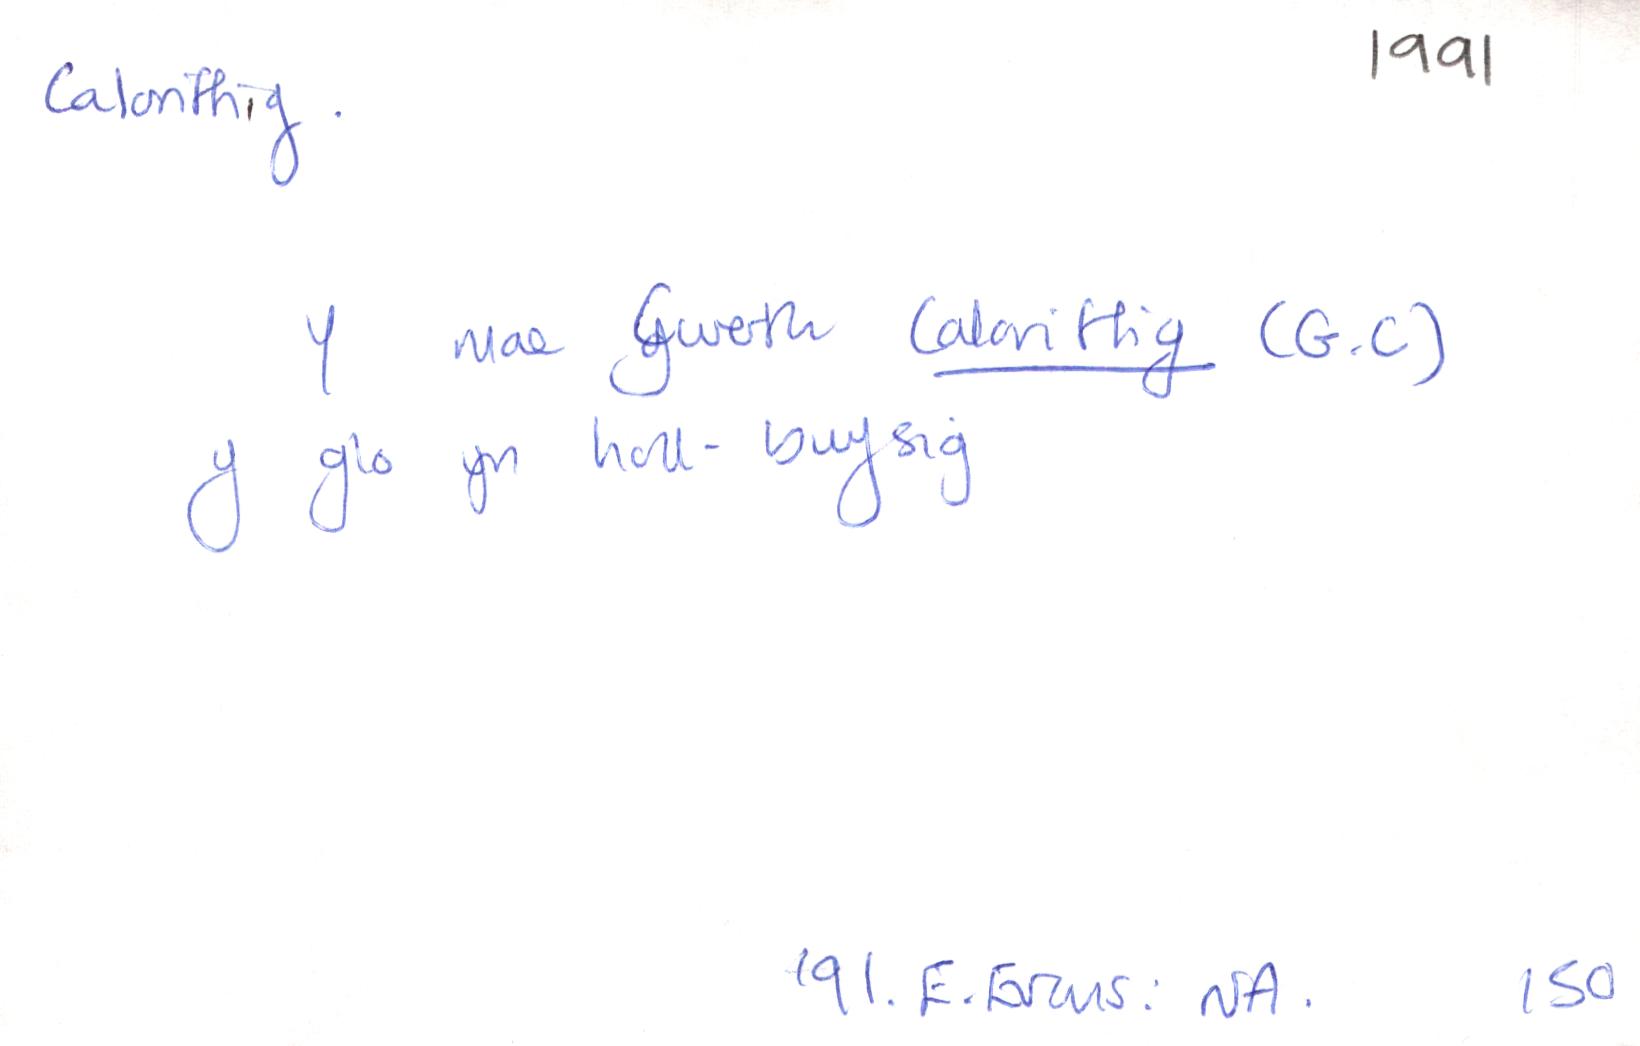 1991
Calorithig.
Y mae Gwerth Calorithig (G.C)
y glo yn holl-bwysig
'91. E. Evans: NA. 150